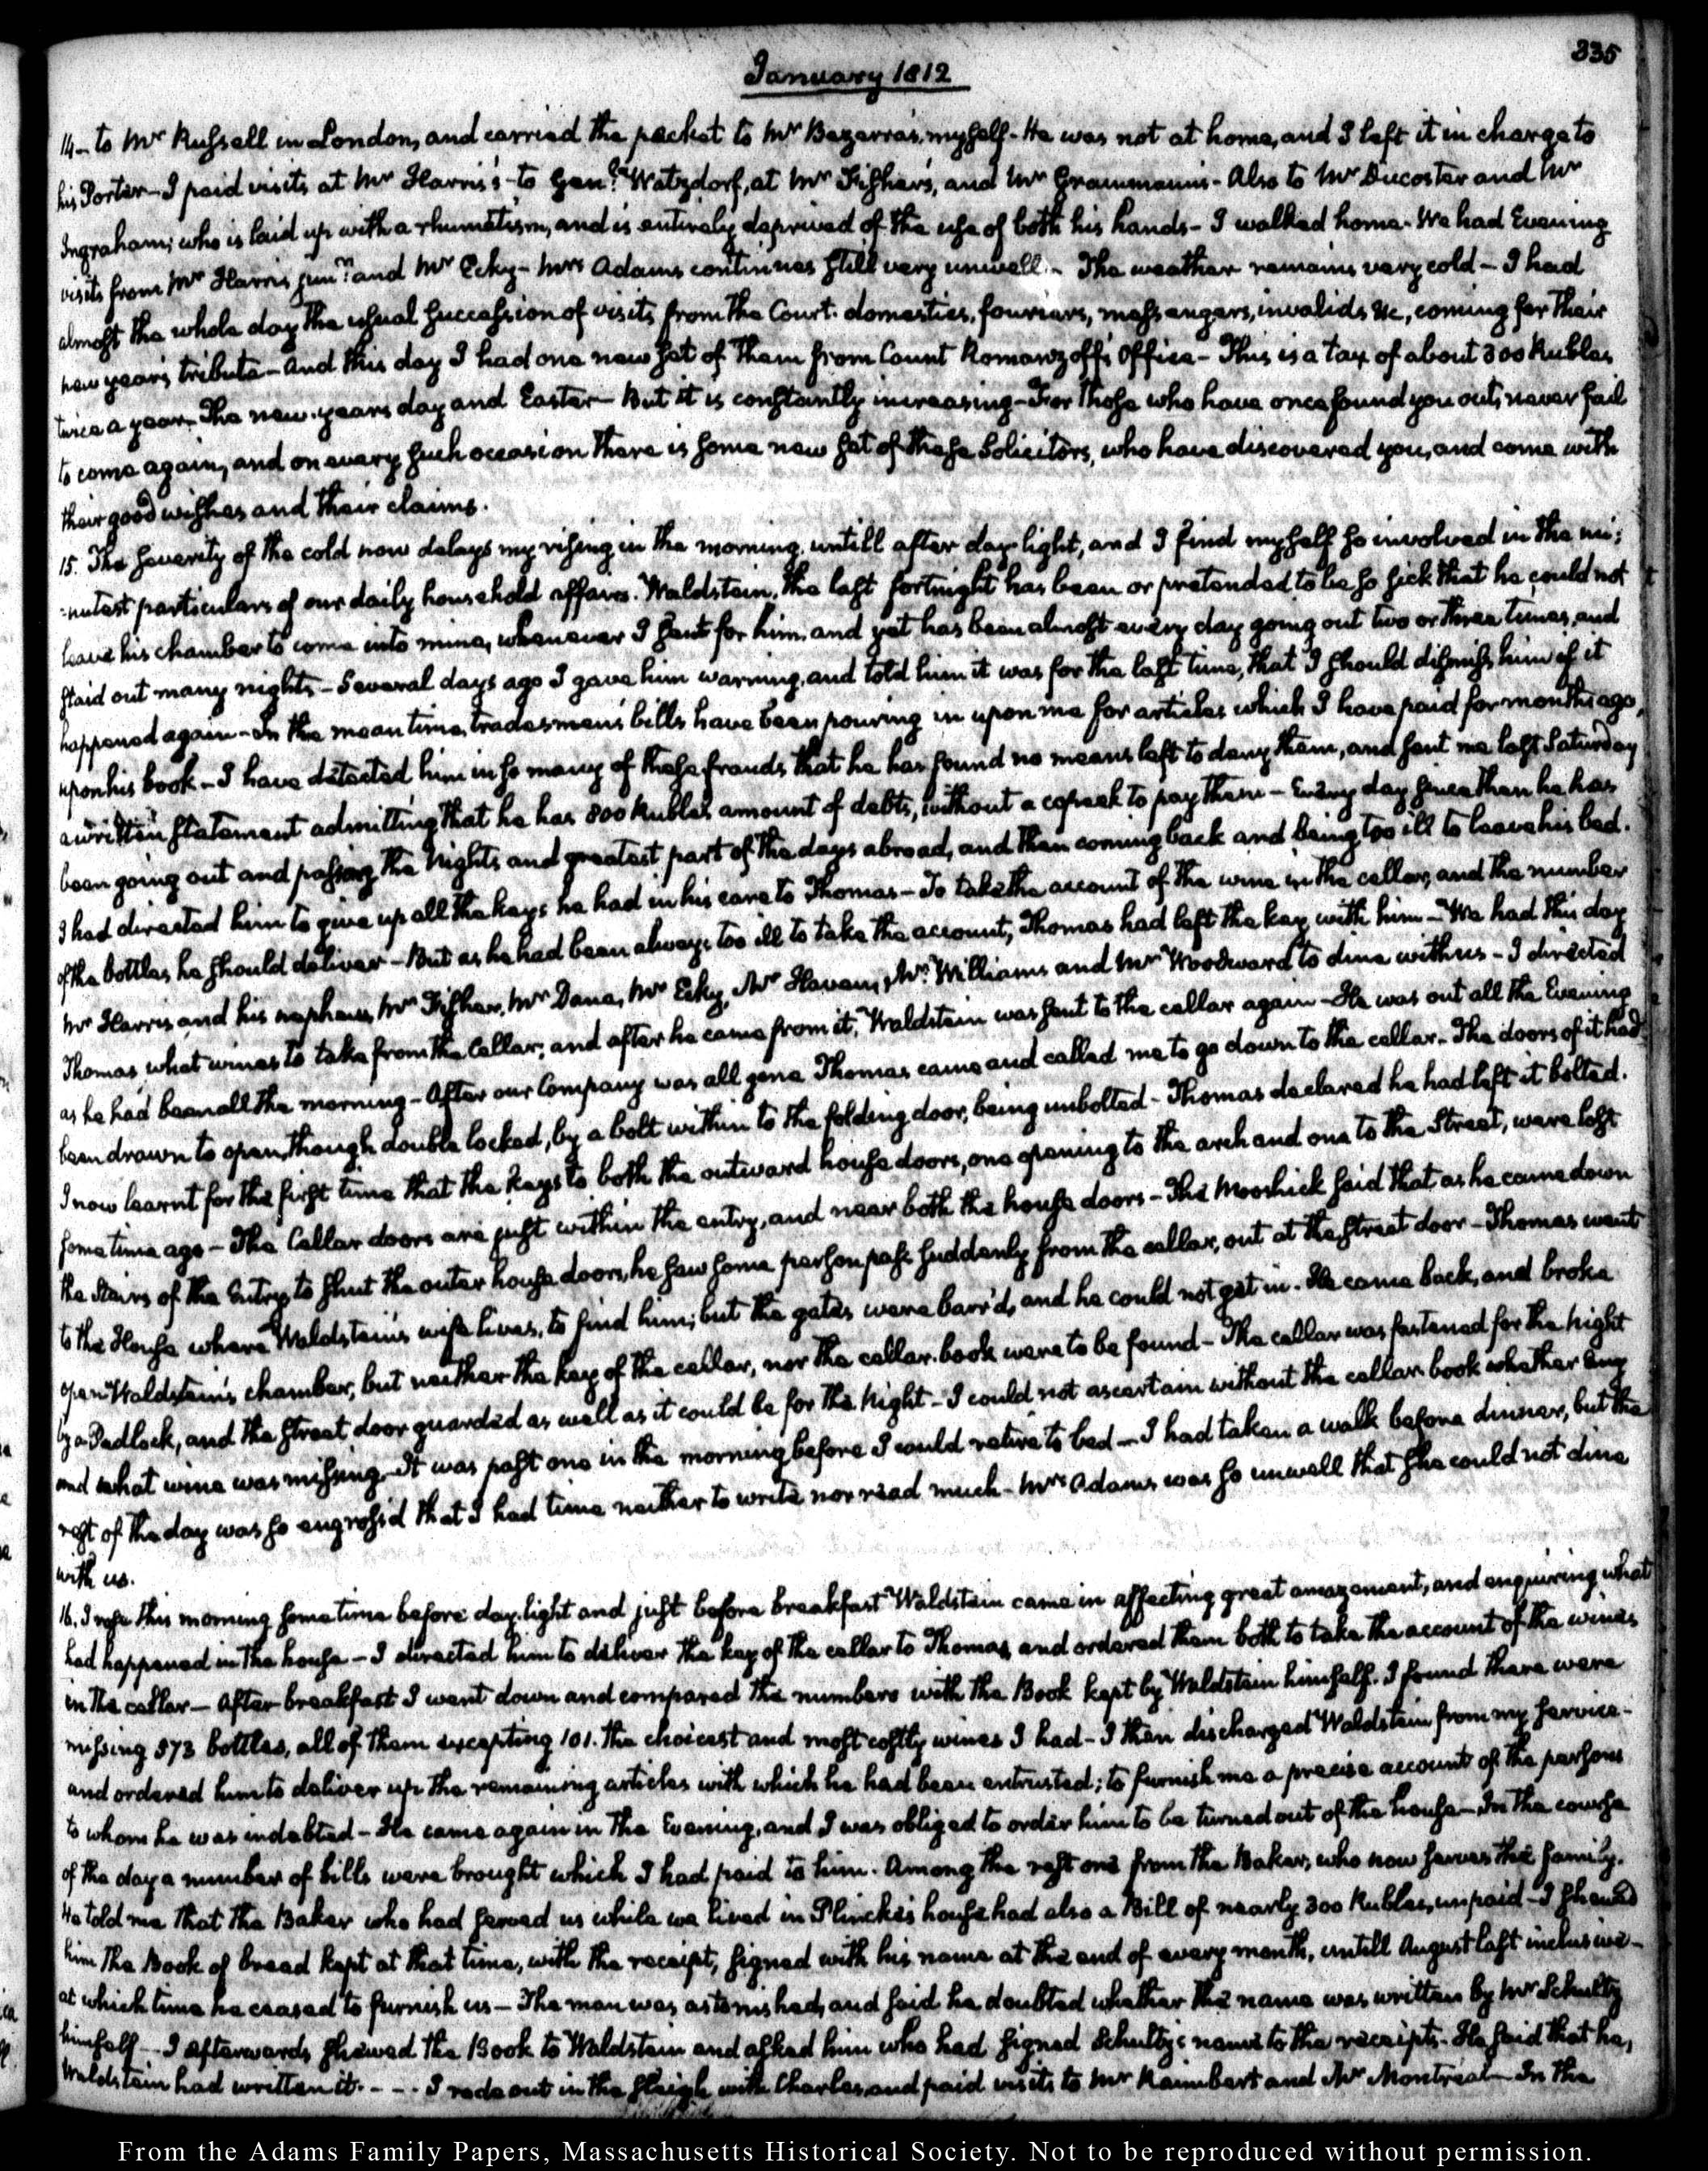 335
January 1812
14— to Mr Russell in London, and carried the packet to Mr Bezerra's, myself— He was not at home, and I left it in charge to
his Porter— I paid visits at Mr Harris's— to Genl. Watzdorf, at Mr Fisher's, and Mr Grammann's— Also to Mr Ducoster and Mr
Ingraham; who is laid up with a rhumatism, and is entirely deprived of the use of both his hands— I walked home. We had Evening
visits from Mr Harris junr. and Mr Eeky— Mrs Adams continues still very unwell.— The weather remains very cold— I had
almost the whole day the usual succession of visits from the Court. domestics, fouriers, messengers, invalids &c, coming for their
new year's tribute— And this day I had one new set of them from Count Romanzoff's Office— This is a tax of about 300 Rubles
twice a year. The new-year's day and Easter— But it is constantly increasing— For those who have once found you out, never fail
to come again, and on every such occasion there is some new set of these Solicitors, who have discovered you, and come with
their good wishes and their claims.
15. The severity of the cold now delays my rising in the morning, untill after day-light, and I find myself so involved in the mi;
-nutest particulars of our daily household affairs. Waldstein, the last fortnight has been or pretended to be so sick that he could not
leave his chamber to come into mine, whenever I sent for him, and yet has been almost every day going out two or three times, and
staid out many nights— Several days ago I gave him warning, and told him it was for the last time, that I should dismiss him if it
happened again— In the mean time, tradesmen's bills have been pouring in upon me for articles which I have paid for months ago,
upon his book— I have detected him in so many of these frauds that he has found no means left to deny them, and sent me last Saturday
a written statement admitting that he has 800 Rubles amount of debts, without a copeck to pay them— Every day since then he has
been going out and passing the nights and greatest part of the days abroad, and then coming back and being too ill to leave his bed.
I had directed him to give up all the keys he had in his care to Thomas— To take the account of the wine in the cellar, and the number
of the bottles he should deliver— But as he had been always too ill to take the account, Thomas had left the key with him— We had this day
Mr Harris and his nephew, Mr Fisher, Mr Dana, Mr Eeky, Mr Haven, Mr Williams and Mr Woodward to dine with us— I directed
Thomas what wines to take from the Cellar; and after he came from it, Waldstein was sent to the cellar again— He was out all the Evening
as he had been all the morning— After our Company was all gone Thomas came and called me to go down to the cellar— The doors of it had
been drawn to open, though double locked, by a bolt within to the folding door, being unbolted— Thomas declared he had left it bolted.
I now learnt for the first time that the keys to both the outward house doors, one opening to the arch and one to the Street, were lost
some time ago— The Cellar doors are just within the entry, and near both the house doors— The Mooshick said that as he came down
the Stairs of the Entry, to shut the outer house doors, he saw some person pass suddenly from the cellar, out at the street door— Thomas went
to the House where Waldstein's wife lives, to find him; but the gates were barr'd, and he could not get in. He came back, and broke
open Waldstein's chamber, but neither the key of the cellar, nor the cellar-book were to be found— The cellar was fastened for the night
by a Padlock, and the street door guarded as well as it could be for the Night— I could not ascertain without the cellar-book whether any
and what wine was missing— It was past one in the morning before I could retire to bed— I had taken a walk before dinner, but the
rest of the day was so engross'd that I had time neither to write nor read much— Mrs Adams was so unwell that she could not dine
with us.
16. I rose this morning some time before day-light and just before breakfast Waldstein came in affecting great amazement, and enquiring what
had happened in the house— I directed him to deliver the key of the cellar to Thomas, and ordered them both to take the account of the wines
in the cellar— After breakfast I went down and compared the numbers with the Book kept by Waldstein himself. I found there were
missing 373 bottles, all of them excepting 101. the choicest and most costly wines I had— I then discharged Waldstein from my service—
and ordered him to deliver up the remaining articles with which he had been entrusted; to furnish me a precise account of the persons
to whom he was indebted— He came again in the Evening, and I was obliged to order him to be turned out of the house— In the course
of the day a number of bills were brought which I had paid to him. Among the rest one from the Baker, who now serves the family.
He told me that the Baker who had served us while we lived in Plincke's house had also a Bill of nearly 300 Rubles, unpaid— I shewed
him the Book of bread kept at that time, with the receipt, signed with his name at the end of every month, untill August last inclusive—
at which time he ceased to furnish us— The man was astonished, and said he doubted whether the name was written by Mr Schultz
himself— I afterwards shewed the Book to Waldstein and asked him who had signed Schultz's name to the receipts. He said that he,
Waldstein had written it. - - - I rode out in the sleigh with Charles, and paid visits to Mr Raimbert and Mr Montréal— In the
From the Adams Family Papers, Massachusetts Historical Society. Not to be reproduced without permission.